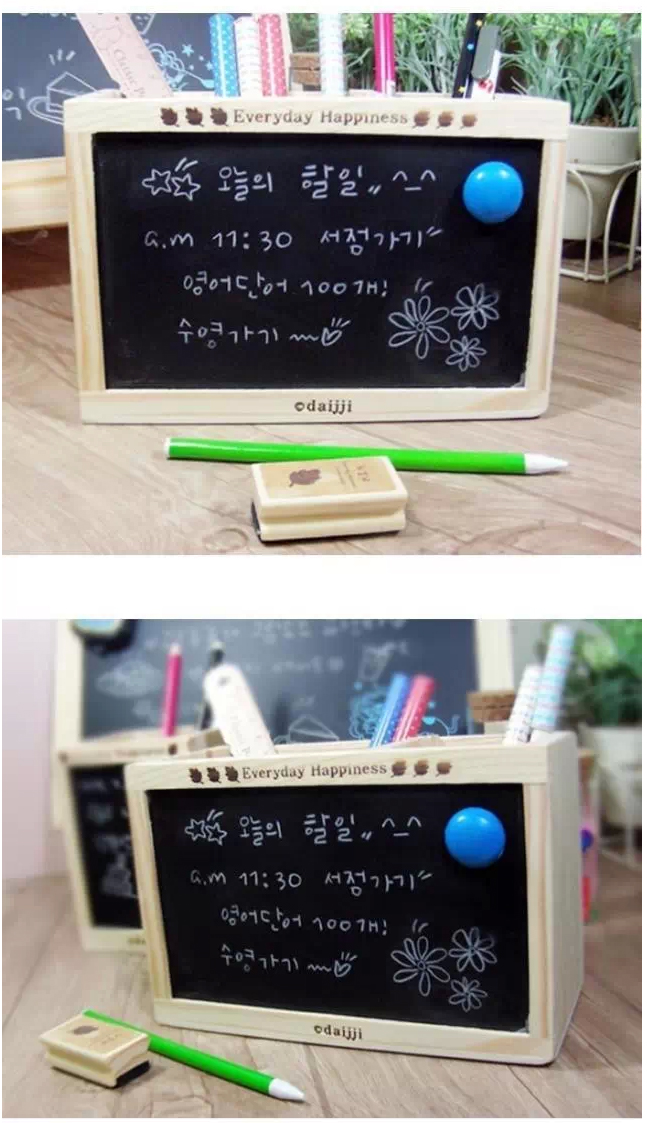 Everyday Happiness
오늘의 할일,, ^_^
a.m 11:30 서점가기〃
영어단어 100개!
수영가기 ~
©daijji
Classic
Everyday Happiness
오늘의 할일,, ^_^
a.m 11:30 서점가기〃
영어단어 100개!
수영가기 ~
©daijji